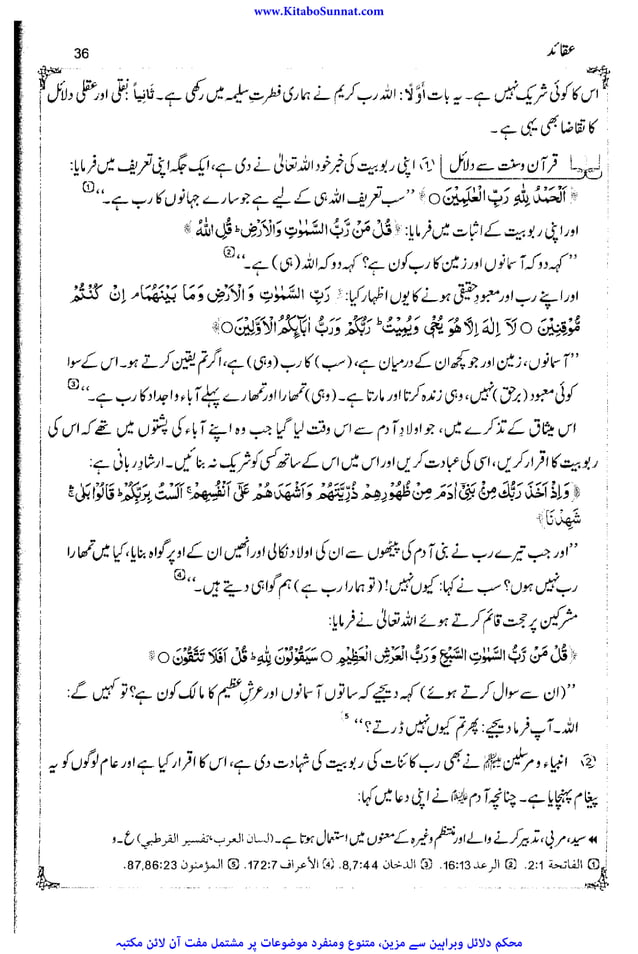 www.KitaboSunnat.com
عقائد 36
اس کا کوئی شریک نہیں ہے۔ یہ بات أَوَّلًا: اللہ رب کریم نے ہماری فطرتِ سلیمہ میں رکھی ہے۔ ثَانِیاً نقلی اور عقلی دلائل
کا تقاضا بھی یہی ہے۔
قرآن وسنت سے دلائل ① اپنی ربوبیت کی خبر خود اللہ تعالیٰ نے دی ہے، ایک جگہ اپنی تعریف میں فرمایا:
﴿ اَلْحَمْدُ لِلّٰهِ رَبِّ الْعٰلَمِيْنَ ○ ﴾ ’’سب تعریف اللہ ہی کے لیے ہے جو سارے جہانوں کا رب ہے۔‘‘①
اور اپنی ربوبیت کے اثبات میں فرمایا: ﴿ قُلْ مَنْ رَّبُّ السَّمٰوٰتِ وَالْاَرْضِ ؕ قُلِ اللّٰهُ ﴾
’’کہہ دو کہ آسمانوں اور زمین کا رب کون ہے؟ کہہ دو کہ اللہ (ہی) ہے۔‘‘②
اور اپنے رب اور معبودِ حقیقی ہونے کا یوں اظہار کیا: ﴿ رَبِّ السَّمٰوٰتِ وَالْاَرْضِ وَمَا بَيْنَهُمَا ۘ اِنْ كُنْتُمْ
مُّوْقِنِيْنَ ○ لَآ اِلٰهَ اِلَّا هُوَ يُحْيٖ وَيُمِيْتُ ؕ رَبُّكُمْ وَرَبُّ اٰبَآىِٕكُمُ الْاَوَّلِيْنَ ○ ﴾
’’آسمانوں، زمین اور جو کچھ ان کے درمیان ہے، (سب) کا رب (وہی) ہے، اگر تم یقین کرتے ہو۔ اس کے سوا
کوئی معبود (برحق) نہیں، وہی زندہ کرتا اور مارتا ہے۔ (وہی) تمھارا اور تمھارے پہلے آباء واجداد کا رب ہے۔‘‘③
اس میثاق کے تذکرے میں، جو اولادِ آدم سے اس وقت لیا گیا جب وہ اپنے آباء کی پشتوں میں تھے کہ اس کی
ربوبیت کا اقرار کریں، اسی کی عبادت کریں اور اس میں اس کے ساتھ کسی کو شریک نہ بنائیں۔ ارشادِ ربانی ہے:
﴿ وَاِذْ اَخَذَ رَبُّكَ مِنْۢ بَنِيْٓ اٰدَمَ مِنْ ظُهُوْرِهِمْ ذُرِّيَّتَهُمْ وَاَشْهَدَهُمْ عَلٰٓى اَنْفُسِهِمْ ۚ اَلَسْتُ بِرَبِّكُمْ ؕ قَالُوْا بَلٰى ۛۚ
شَهِدْنَا ۛ﴾
’’اور جب تیرے رب نے بنی آدم کی پیٹھوں سے ان کی اولاد نکالی اور انھیں ان کے اوپر گواہ بنایا، کیا میں تمھارا
رب نہیں ہوں؟ سب نے کہا: کیوں نہیں! (تو ہمارا رب ہے) ہم گواہی دیتے ہیں۔‘‘④
مشرکین پر حجت قائم کرتے ہوئے اللہ تعالیٰ نے فرمایا:
﴿ قُلْ مَنْ رَّبُّ السَّمٰوٰتِ السَّبْعِ وَرَبُّ الْعَرْشِ الْعَظِيْمِ ○ سَيَقُوْلُوْنَ لِلّٰهِ ؕ قُلْ اَفَلَا تَتَّقُوْنَ ○ ﴾
’’(ان سے سوال کرتے ہوئے) کہہ دیجیے کہ ساتوں آسمانوں اور عرشِ عظیم کا مالک کون ہے؟ تو کہیں گے:
اللہ۔ آپ فرما دیجیے: پھر تم کیوں نہیں ڈرتے؟‘‘⑤
② انبیاء و مرسلین ﷩ نے بھی رب کائنات کی ربوبیت کی شہادت دی ہے، اس کا اقرار کیا ہے اور عام لوگوں کو یہ
پیغام پہنچایا ہے۔ چنانچہ آدم علیہ السلام نے اپنی دعا میں کہا:
◀◀ سید، مربی، تدبیر کرنے والے اور منتظم وغیرہ کے معنوں میں استعمال ہوتا ہے۔ (لسان العرب، تفسیر القرطبي) ع۔و
① الفاتحة 2:1. ② الرعد 16:13. ③ الدخان 8,7:44. ④ الأعراف 172:7. ⑤ المؤمنون 87,86:23.
محکم دلائل وبراہین سے مزین، متنوع ومنفرد موضوعات پر مشتمل مفت آن لائن مکتبہ